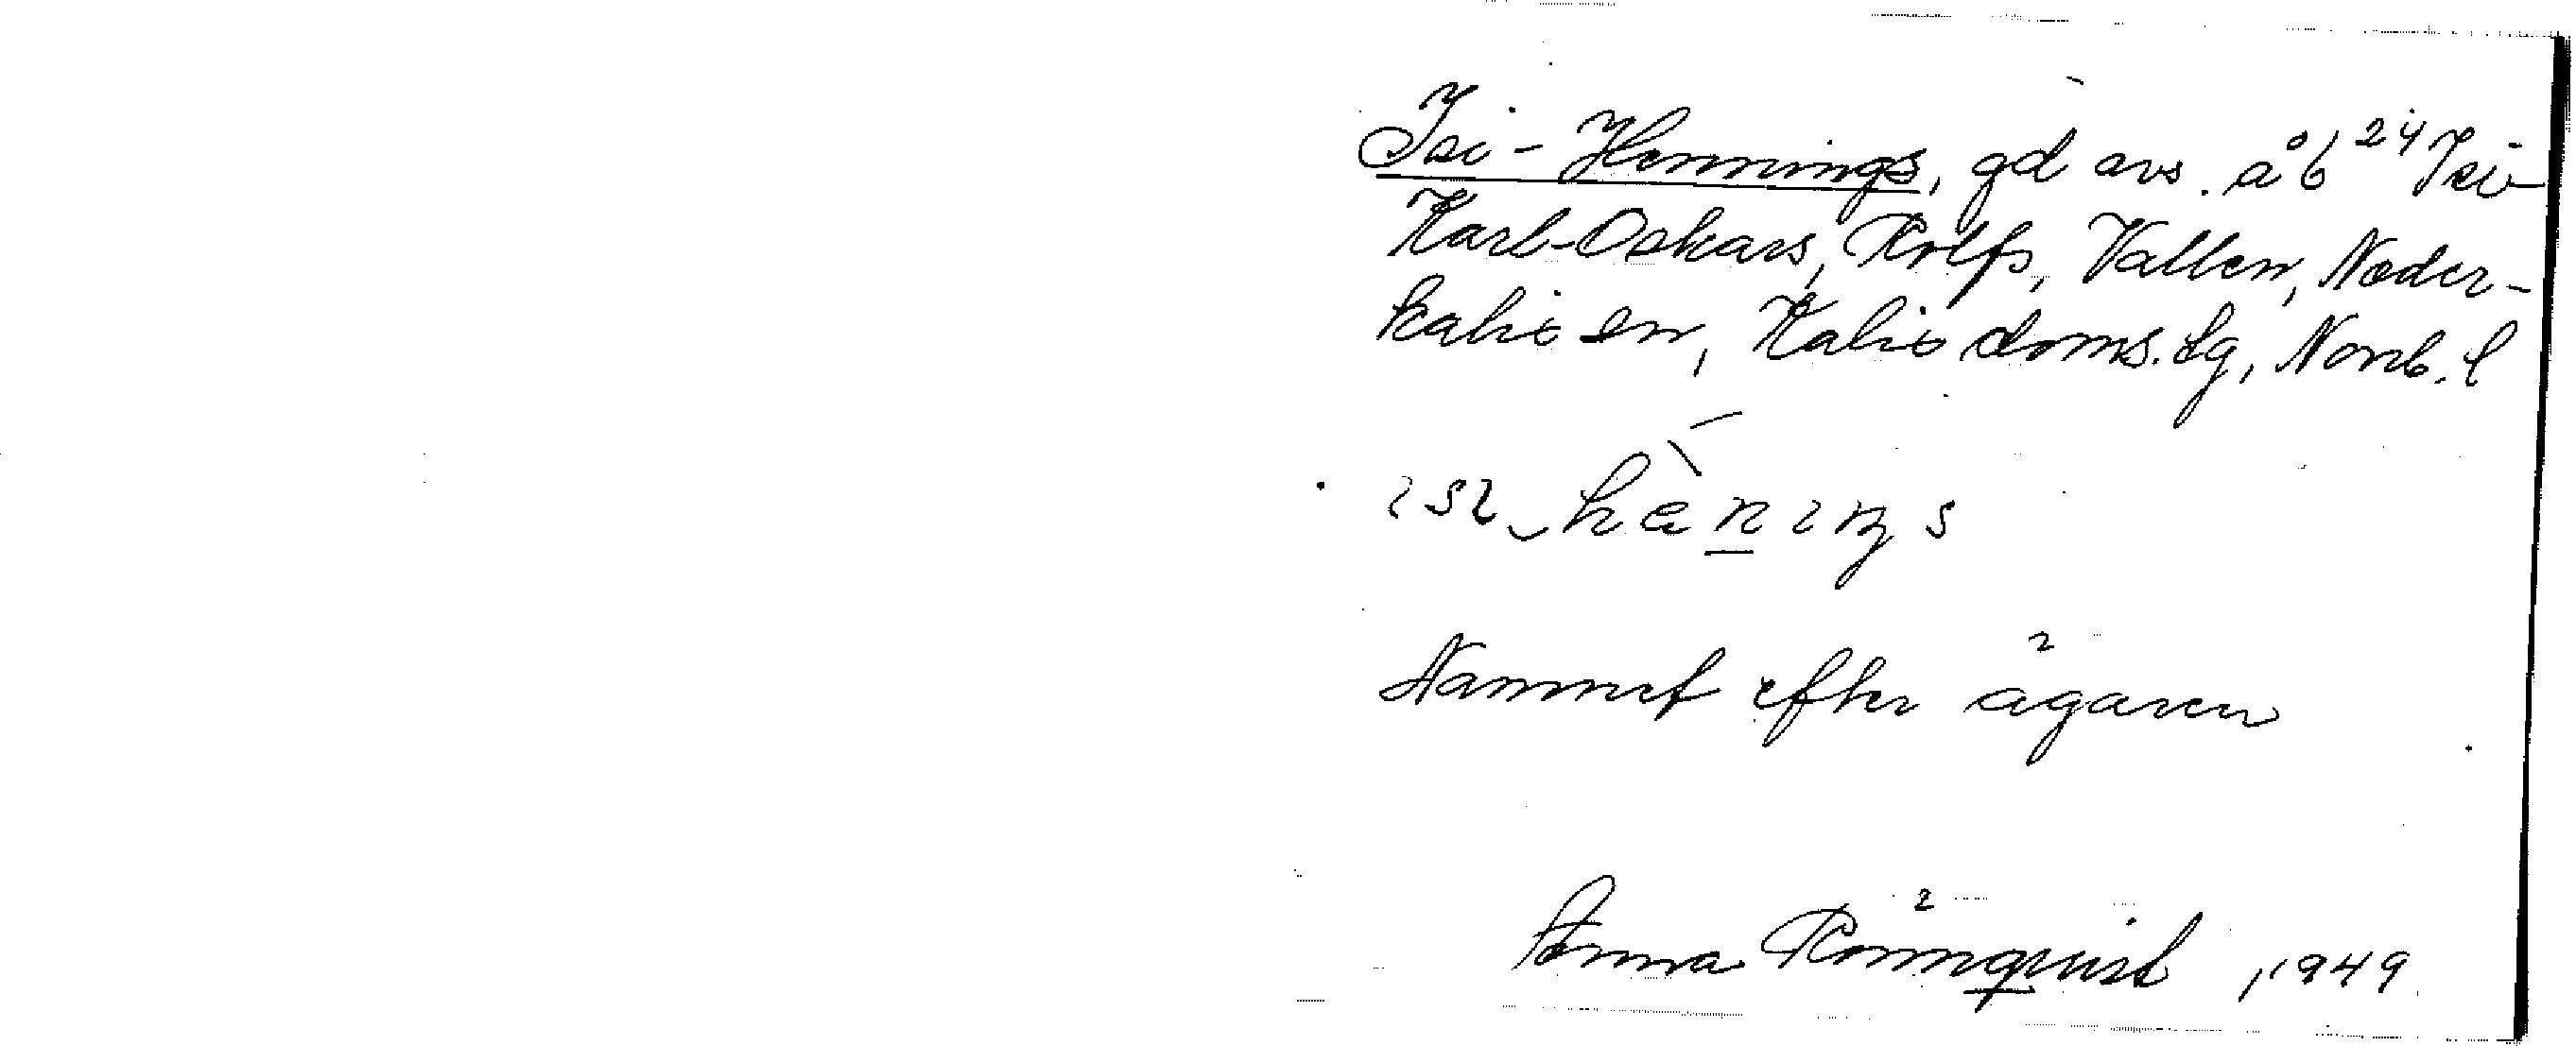 Isi-Hennings, gd avs. å 6²⁴ Isi-
Karl-Oskars, Rolfs, Vallen, Neder-
kalix sn, Kalix doms.lg, Norrb. l
ɩsɩ‿hæn̲ɩŋs
Namnet efter ägaren
Anna Rönnqvist, 1949